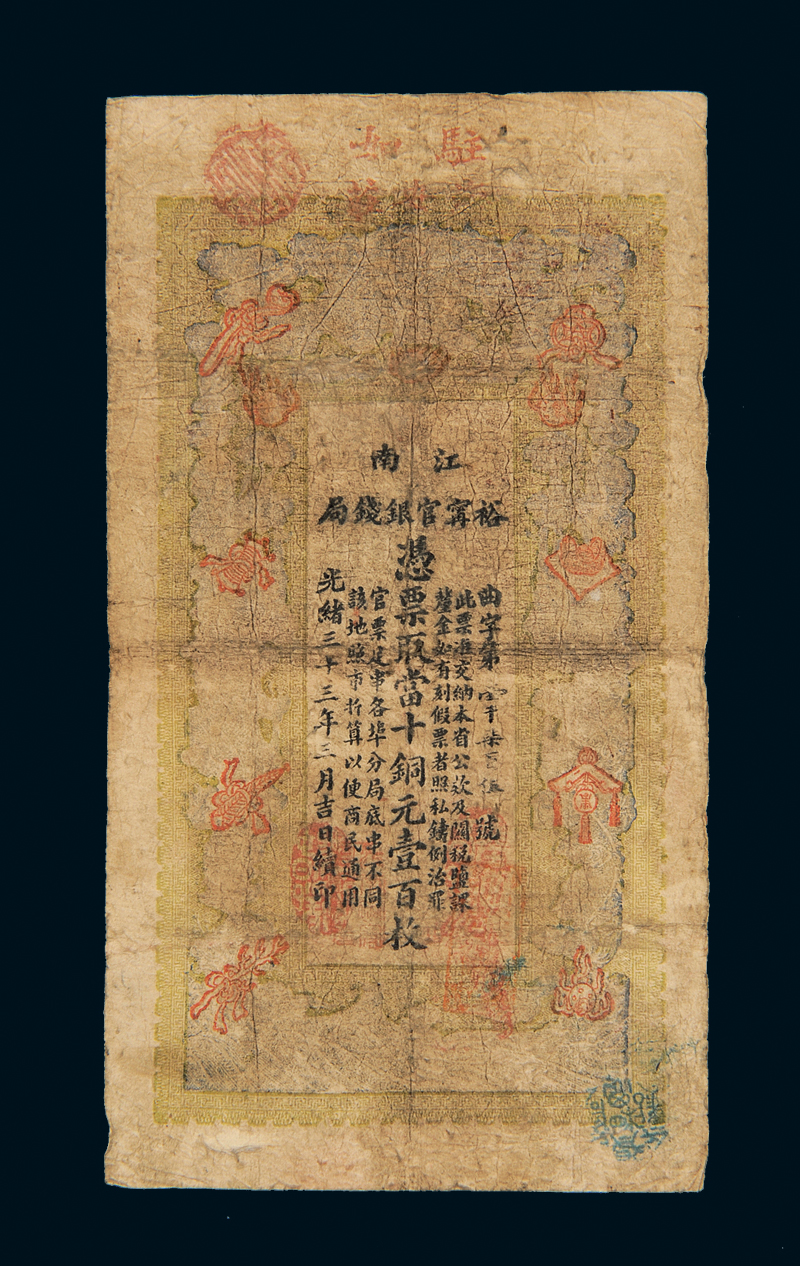 駐 如
江南
裕甯官銀錢局
曲字第 字柒百伍 號
此票准交納本省公欵及關税鹽課
釐金如有刻假票者照私鑄例治罪
憑票取當十銅元壹百枚
官票足串各埠分局底串不同
該地照市折算以便商民通用
光緒三十三年三月吉日續印